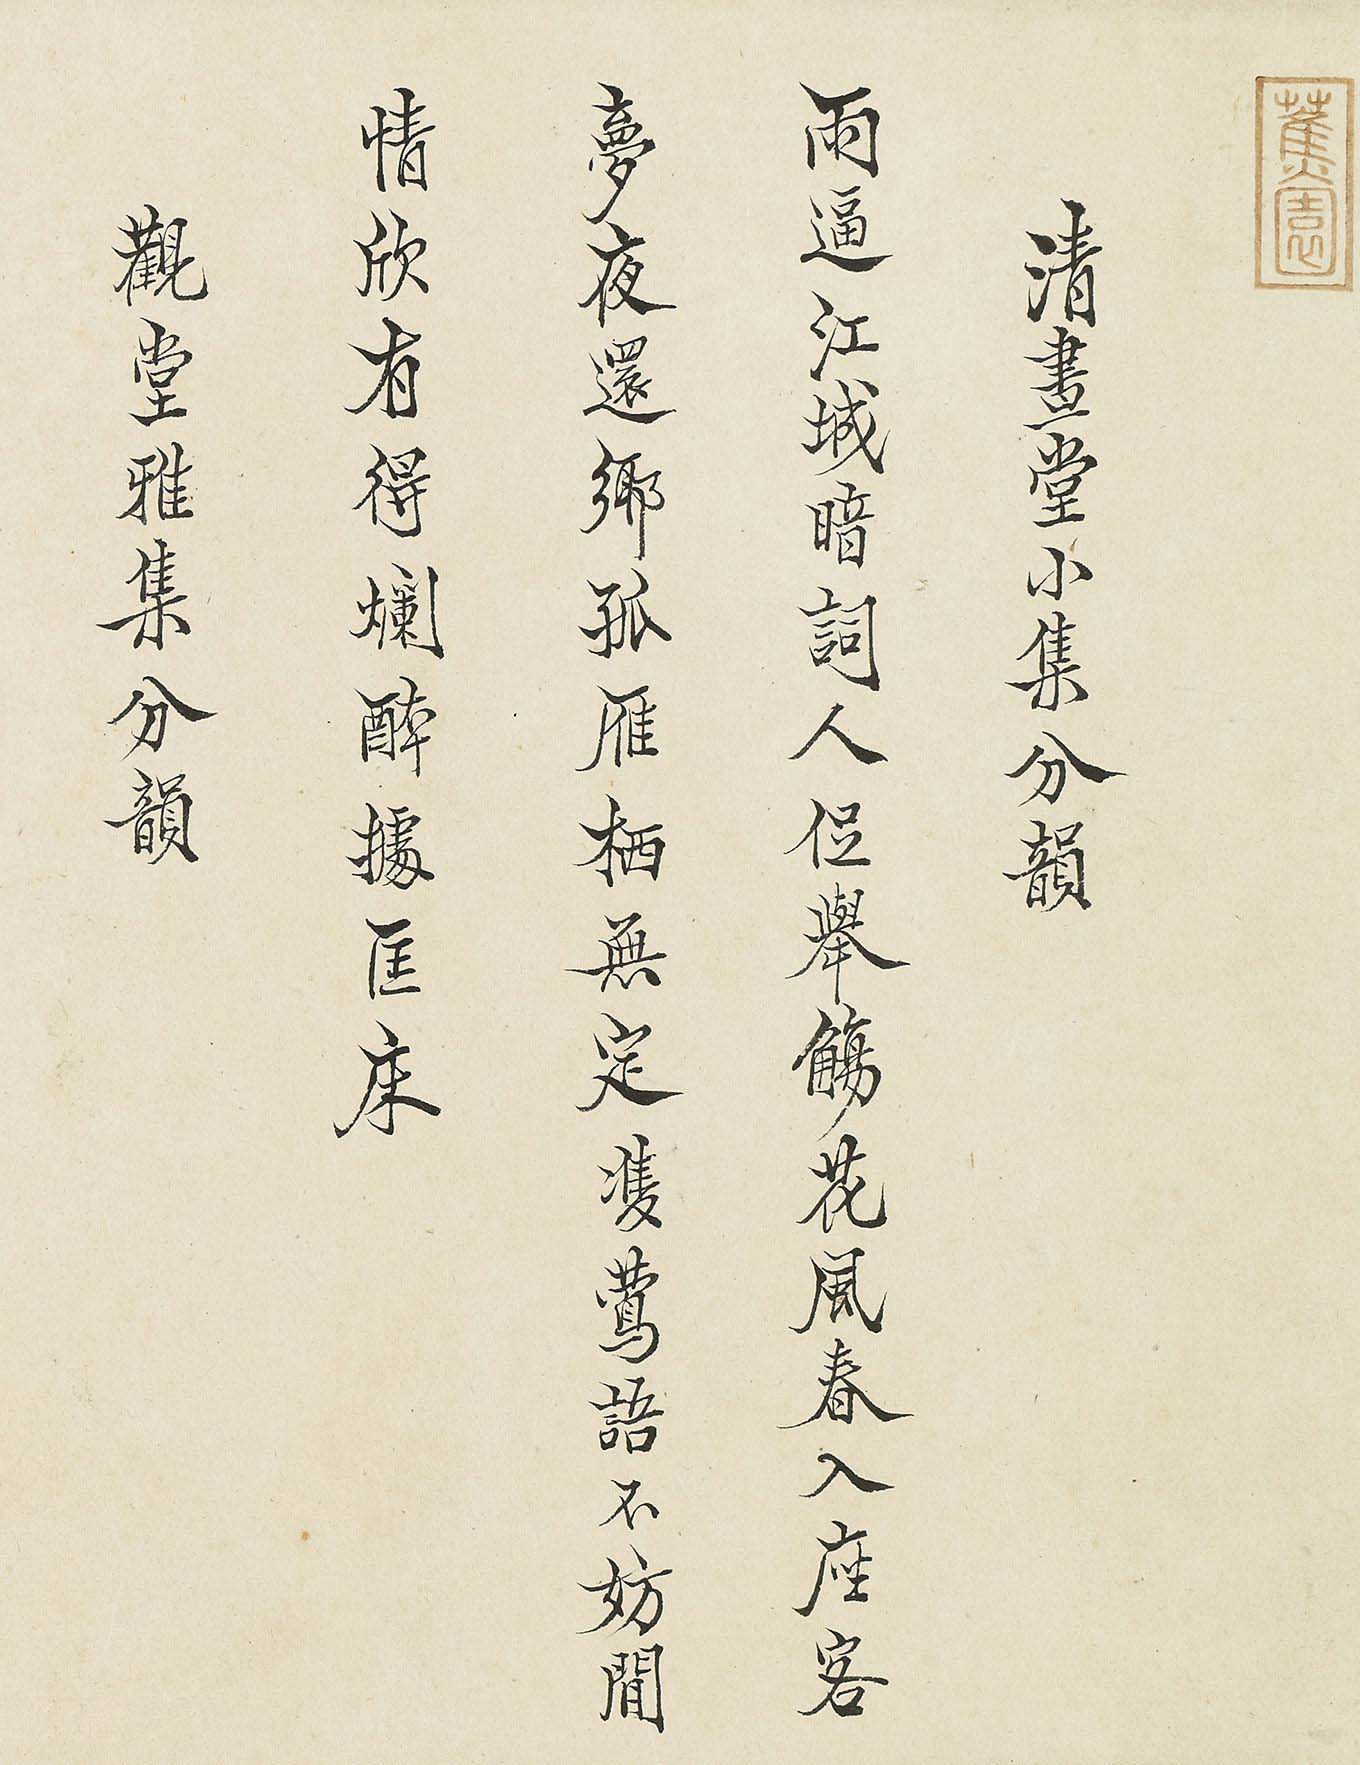 蕉園
清晝堂小集分韻
雨逼江城暗詞人促舉觴花風春入座客
夢夜還鄉孤雁栖無定雙鶯語不妨閒
情欣有得爛醉據匡床
觀堂雅集分韻